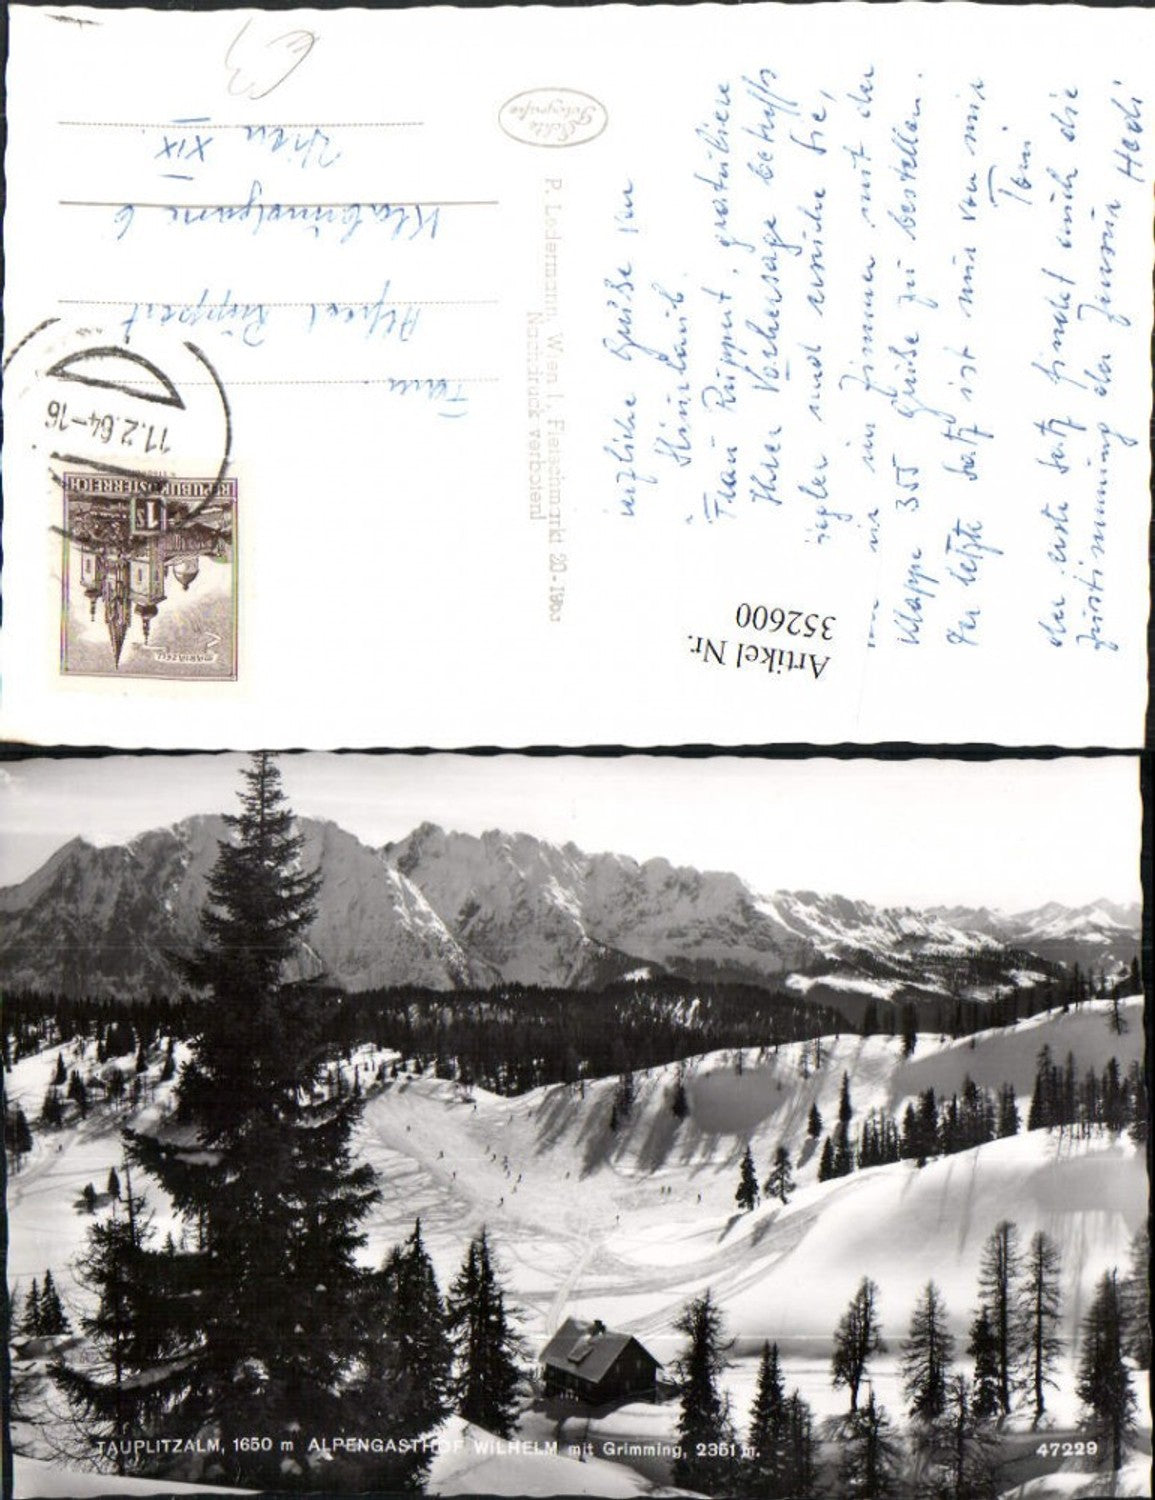 Herzliche Grüße von
Frau Ruppert, gratuliere
Ihrer Vorhersage betreffs
und
im Zimmer mit der
Klappe 355 Grüße zu bestellen.
Der letzte Satz ist nur von mir
Toni
der erste Satz findet auch die
Zustimmung der
Hedi
Echte
Fotografie
P. Ledermann, Wien I, Fleischmarkt 20-
Nachdruck verboten
Alfred Ruppert
6
Wien XIX.
11.2.64-16
REPUBLIK ÖSTERREICH
1 S
MARIAZELL
Artikel Nr.
352600
TAUPLITZALM, 1650 m ALPENGASTHOF WILHELM mit Grimming, 2351 m.
47229